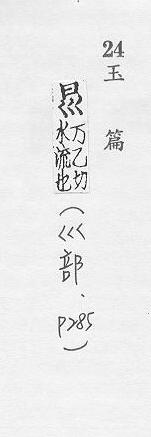 24 玉篇
万乙切
水流也
（巛部、P285）